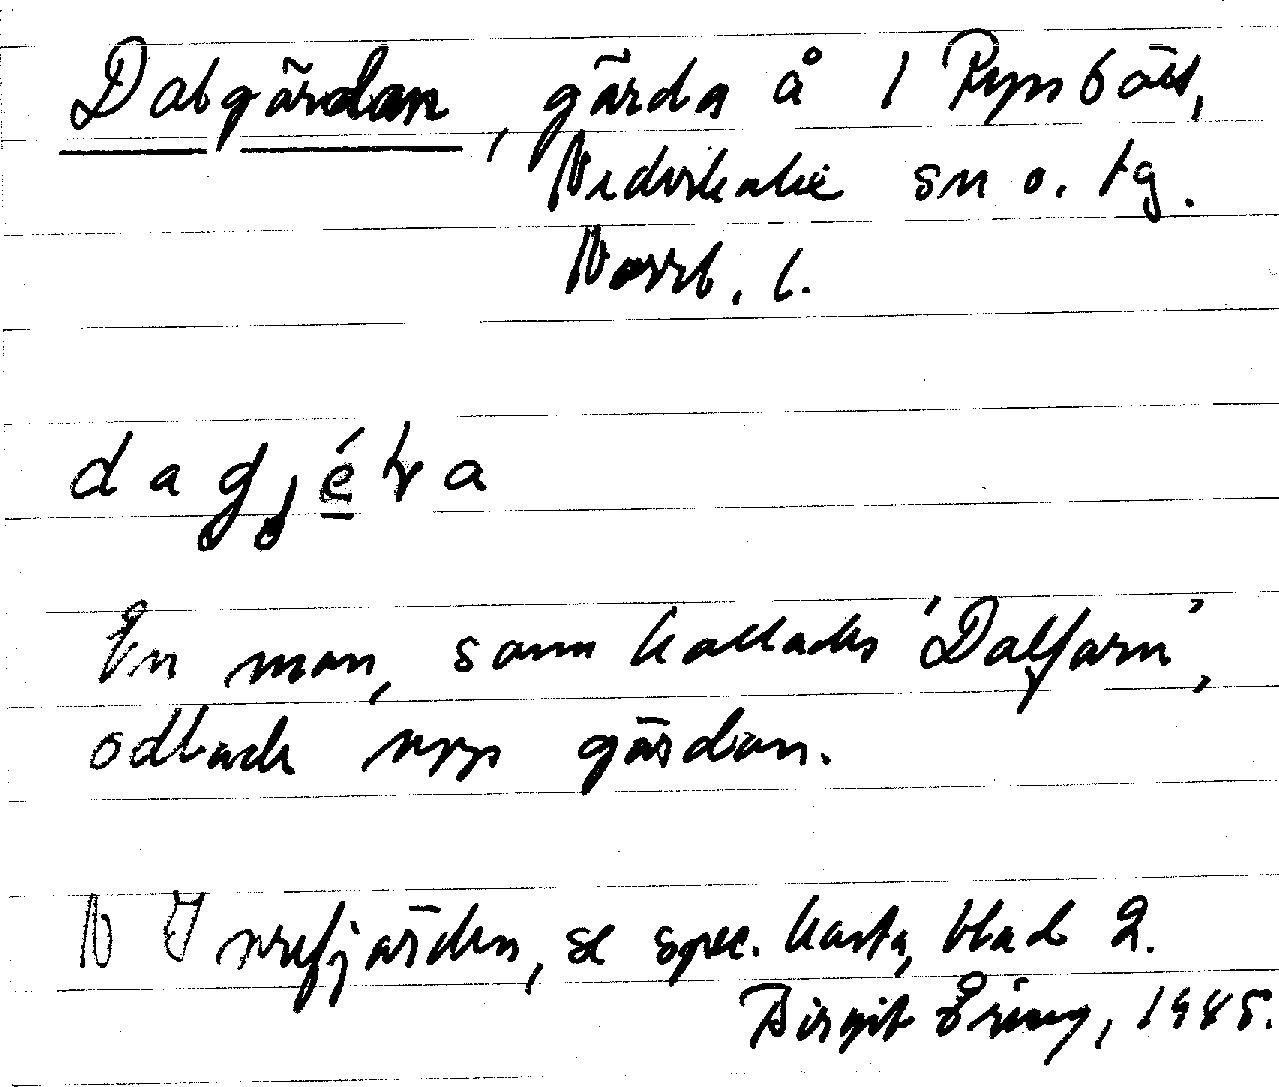 Dalgärdan, gärda å 1 Rynbäck,
Nederkalix sn o. tg.
Norrb. l.
En man, som kallades 'Dalfarn',
odlade upp gärdan.
N Innrefjärden, se spec. karta, blad 2.
Birgit Ering, 1985.